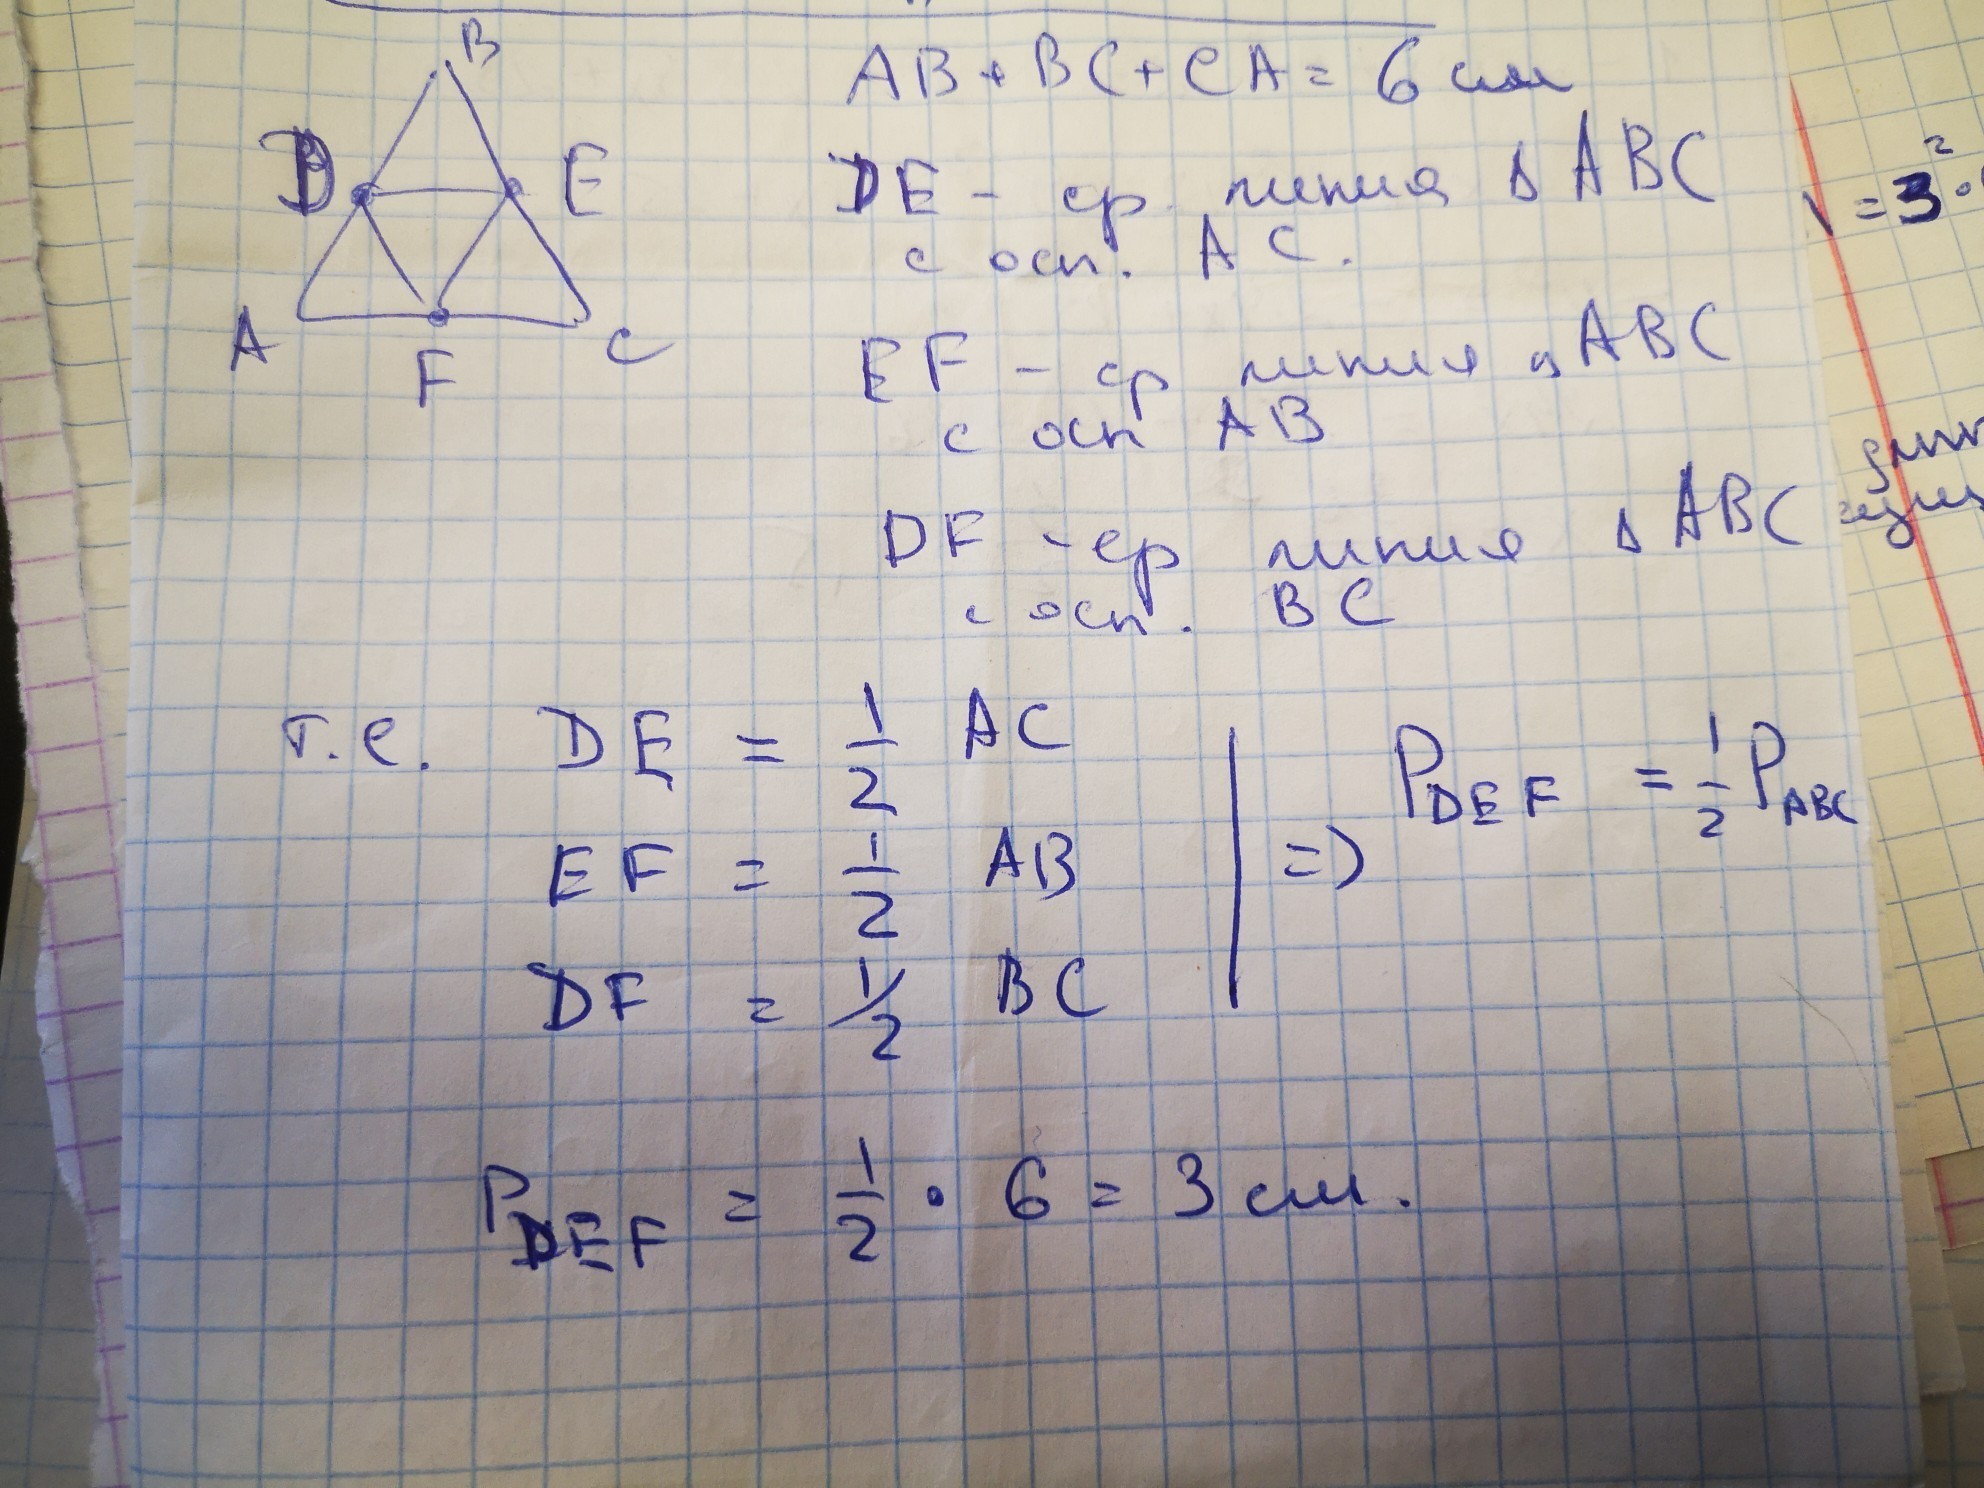 B
D E
A F C
AB + BC + CA = 6 см
DE - ср. линия Δ ABC
с осн. AC.
EF - ср линия Δ ABC
с осн AB
DF - ср линия Δ ABC
с осн. BC
т.е. DE = 1/2 AC
EF = 1/2 AB
DF = 1/2 BC
=> P_DEF = 1/2 P_ABC
P_DEF = 1/2 · 6 = 3 см.
= 3² ·